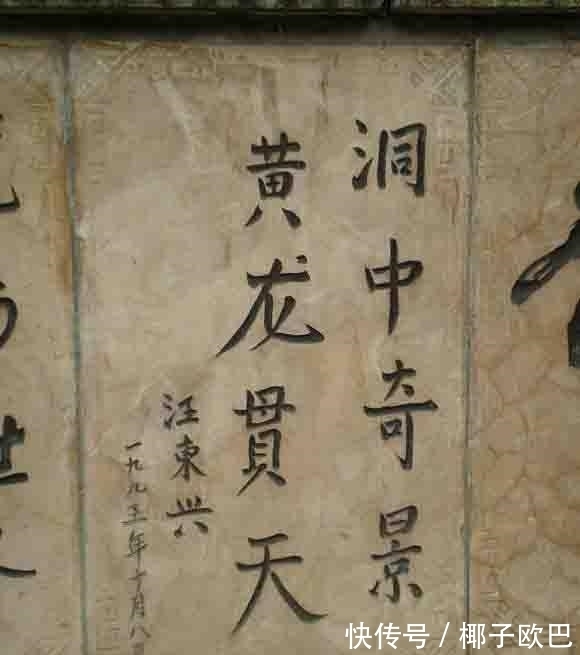 洞中奇景
黄龙貫天
汪東兴
一九九五年十月八日
快传号 / 椰子欧巴